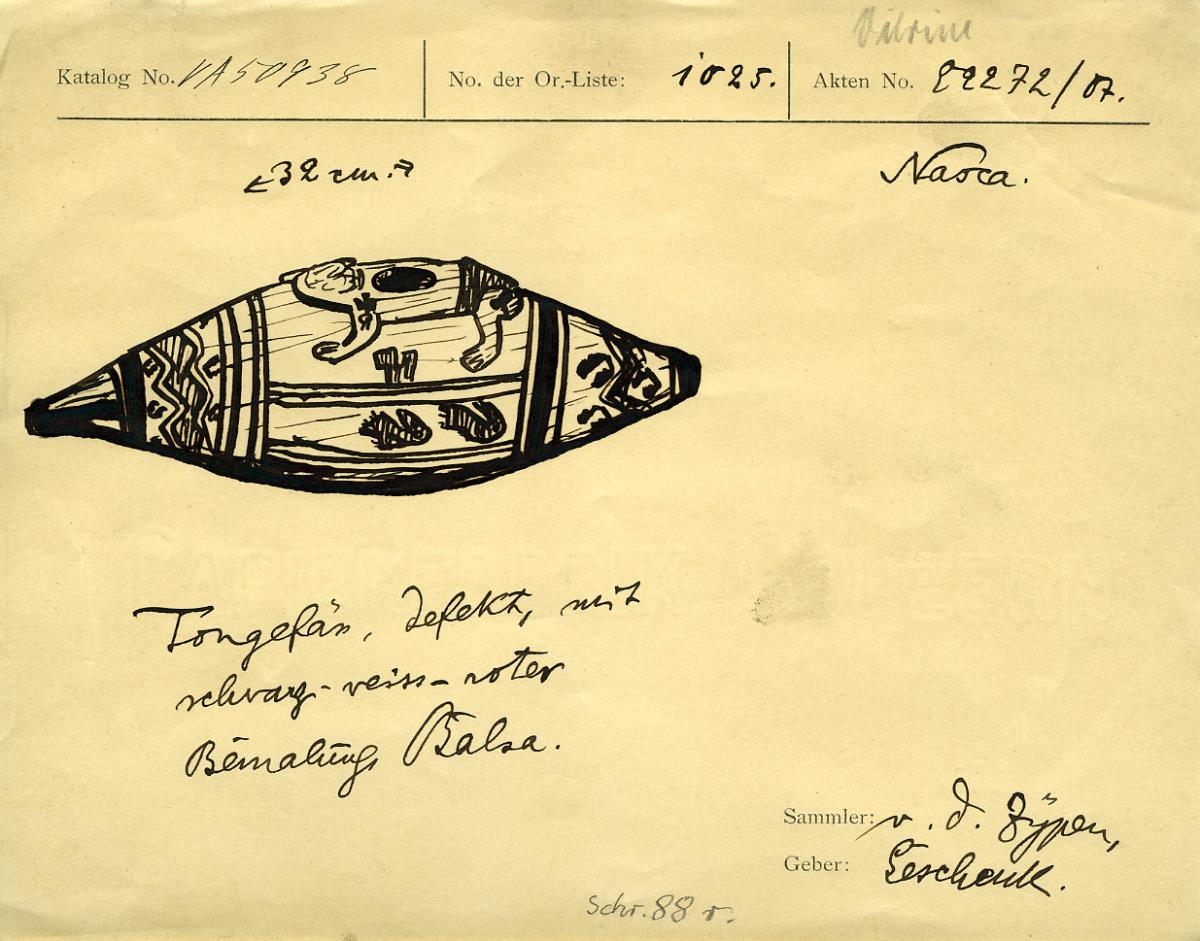 Vitrine
Katalog No. VA 50938 No. der Or.-Liste: 1025. Akten No. E2272/07.
←32 cm.→ Nasca.
Tongefäss, defekt, mit
schwarz-weiss-roter
Bemalung, Balsa.
Sammler: v. d. Zÿpen,
Geber: Geschenk.
Schr. 88 r.